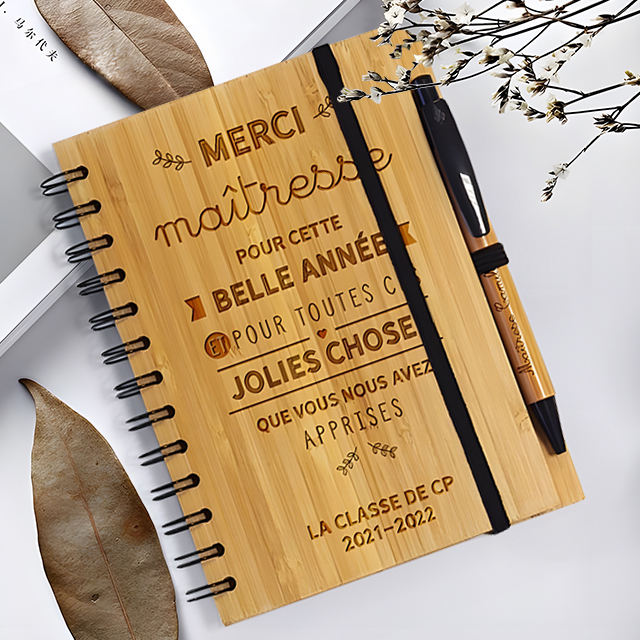 马尔代夫
MERCI
maîtresse
POUR CETTE
BELLE ANNÉE
ET POUR TOUTES C
JOLIES CHOSE
QUE VOUS NOUS AVEZ
APPRISES
LA CLASSE DE CP
2021-2022